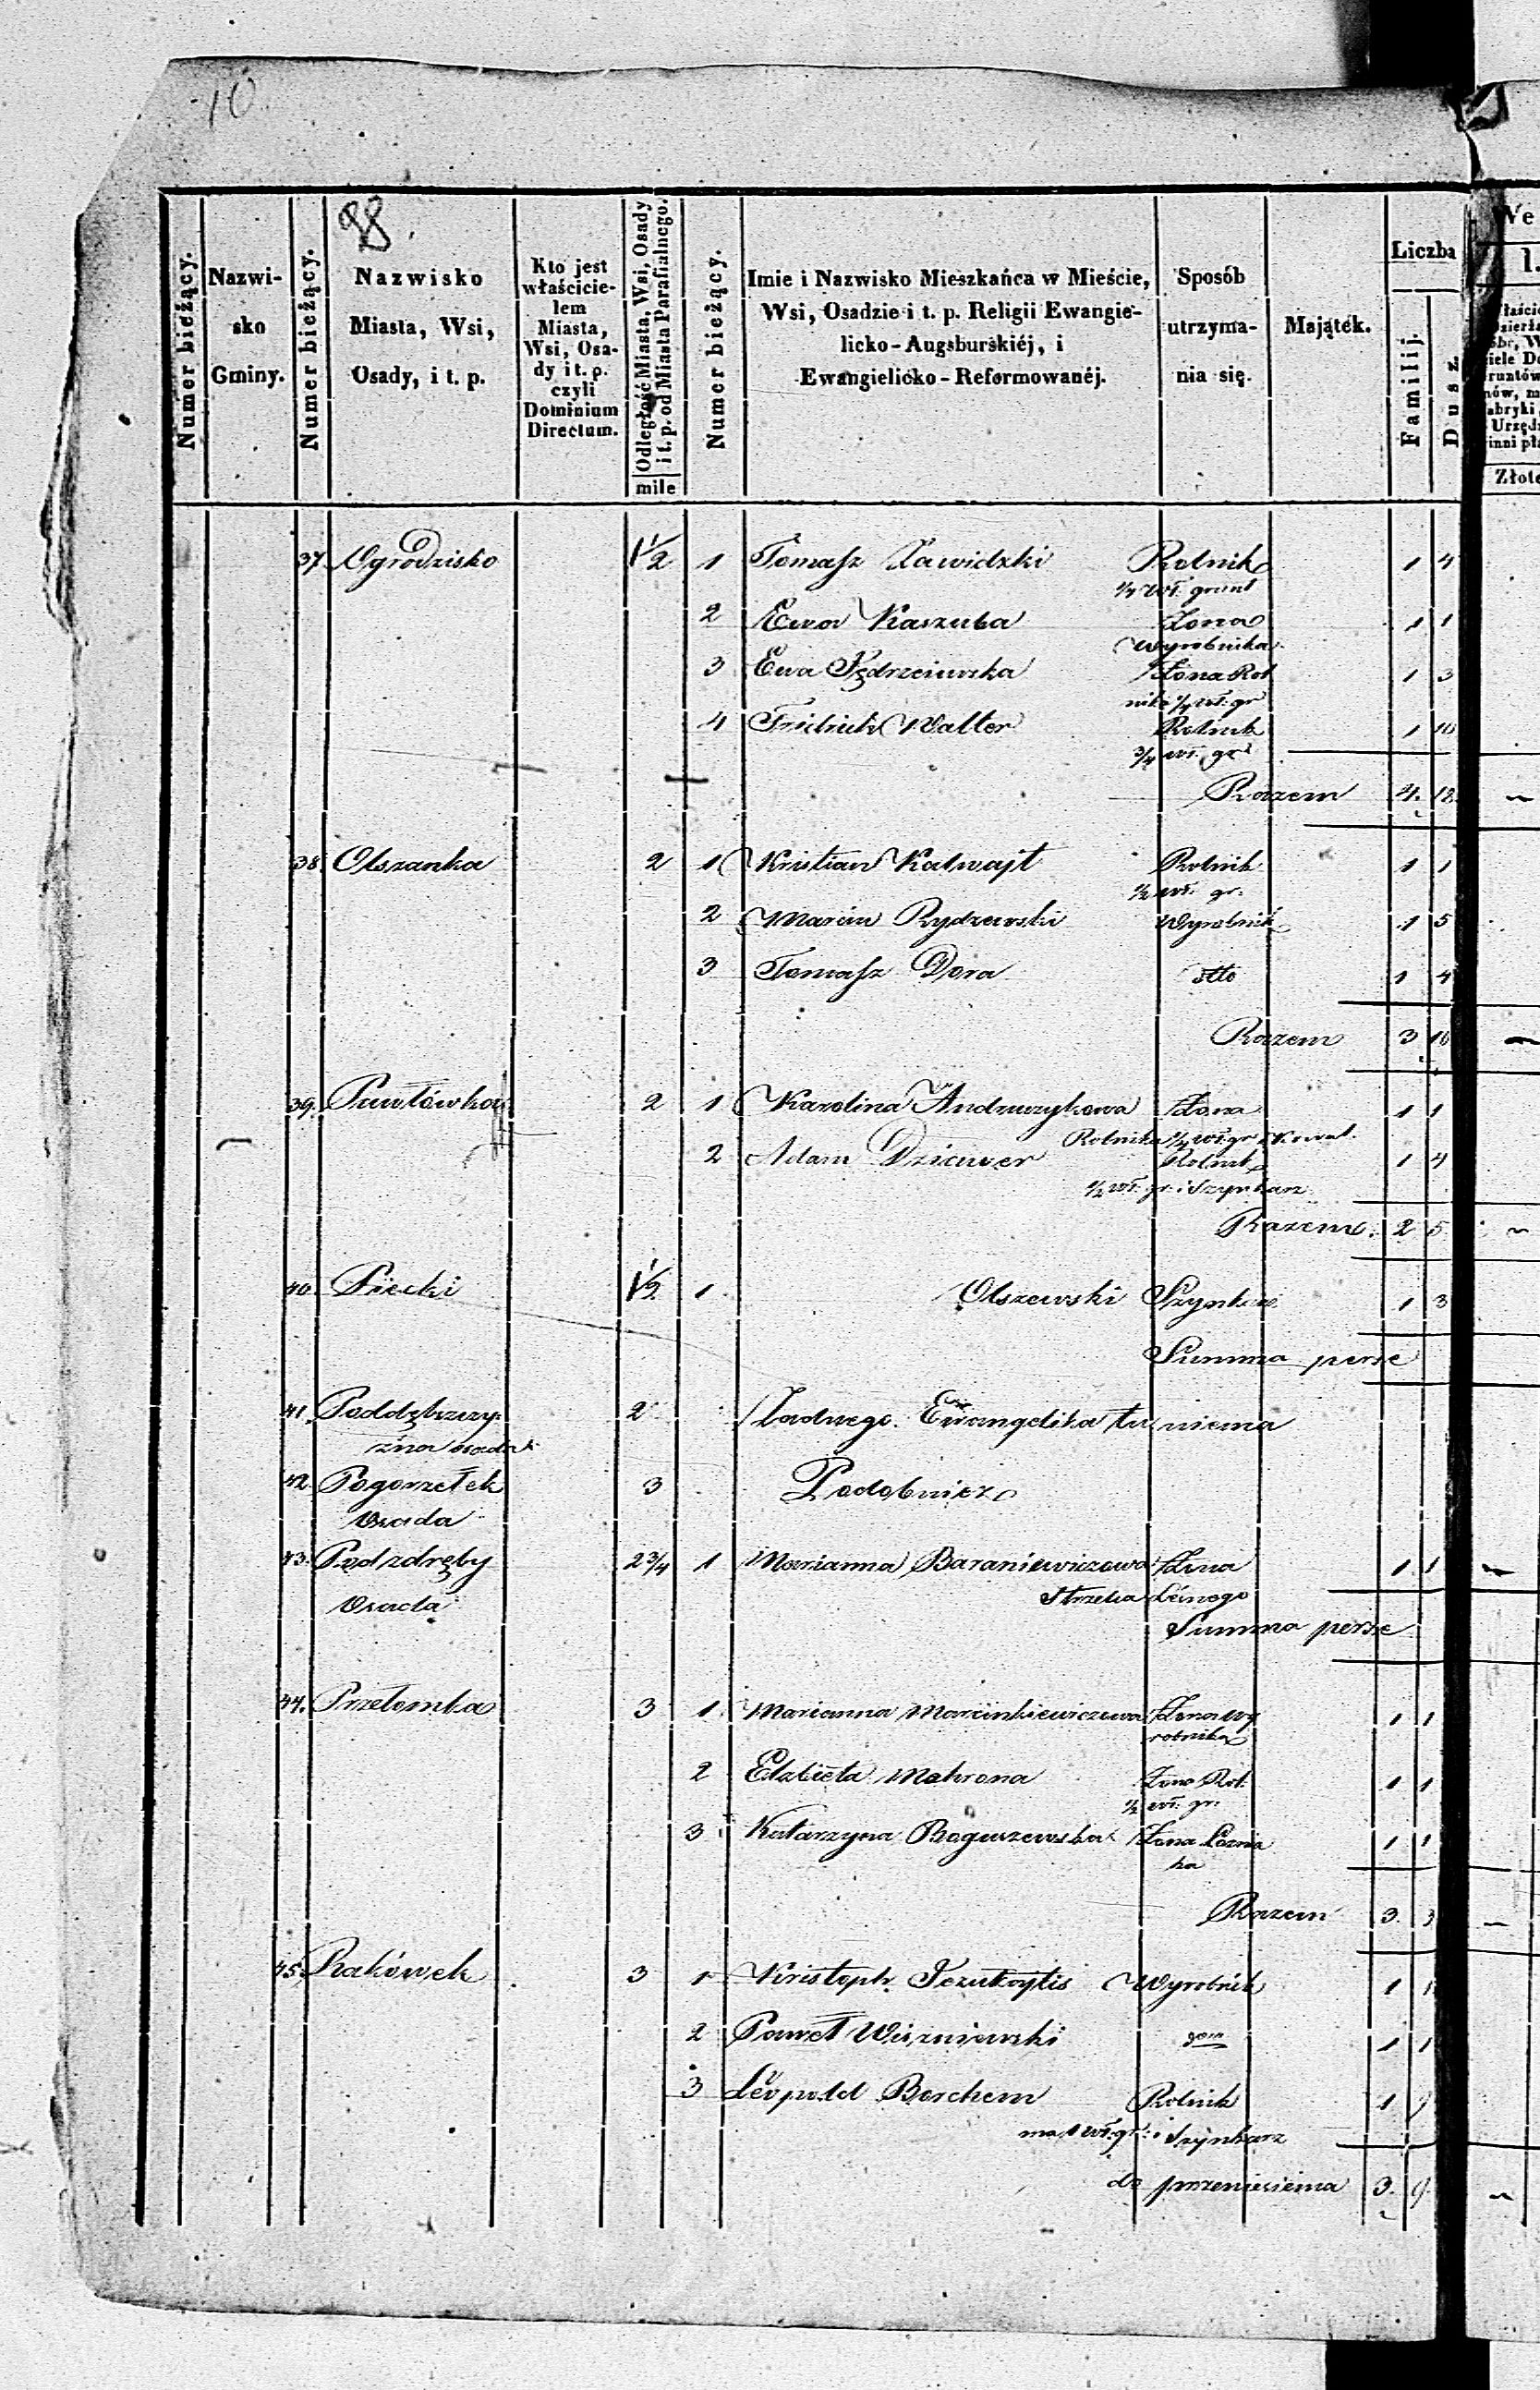 10
98.
Numer bieżący.
Nazwi-
sko
Gminy.
Numer bieżący.
Nazwisko
Miasta, Wsi,
Osady, i t. p.
Kto jest
właścicie-
lem
Miasta,
Wsi, Osa-
dy i t. p.
czyli
Dominium
Directum.
Odległość Miasta, Wsi, Osady
i t. p. od Miasta Parafialnego.
mile
Numer bieżący.
Imie i Nazwisko Mieszkańca w Mieście,
Wsi, Osadzie i t. p. Religii Ewangie-
licko-Augsburskiéj, i
Ewangielicko-Reformowanéj.
Sposób
utrzyma-
nia się.
Majątek.
Liczba
Familij.
Dusz.
We
1.
Złote
37. Ogrodzisko 1½ 1 Tomasz Zawidzki Rolnik 1 4
¼ wł. grunt
2 Ewa Kaszuba Żona 1 1
Wyrobnika
3 Ewa Jędrzeiewska Żona Rol 1 3
nika ¼ wł. gr
4 Fridrich Walter Rolnik 1 10
¾ wł. gr
Razem 4. 18.
38. Olszanka 2 1 Kristian Kalwajt Rolnik 1 1
½ wł. gr.
2 Marcin Rydzewski Wyrobnik 1 5
3 Tomasz Dora dtto 1 4
Razem 3 10
39. Pawłówka 2 1 Karolina Andruczykowa Żona 1 1
Rolnika ½ wł. gr i Kowal.
2 Adam Dziewer Rolnik 1 4
½ wł. gr. i Szynkarz
Razem. 2 5
40. Piecki 1½ 1 Olszewski Szynkarz 1 3
Summa perse
41. Poddębszczy- 2 Żadnego Ewangelika tu niema
zna osada
42. Pogorzełek 3 Podobnież
Osada
43. Podzdręby 2¾ 1 Marianna Baraniewiczowa Żona 1 1
Osada Strzelca Leśnego
Summa perse
44. Przełomka 3 1 Marianna Marcinkiewiczowa Żona wy 1 1
robnika
2 Elzbieta Mekrona Żona Rol. 1 1
½ wł. gr.
3 Katarzyna Boguszewska Żona Leśnia 1 1
ka
Razem 3. 3
45. Rakówek 3 1 Kristoph Jezukajtis Wyrobnik 1 1
2 Paweł Wiszniewski 1 1
3 Leopold Borchem Rolnik 1
ma 1 wł. gr. i Szynkarz
do przeniesienia 3. 9.